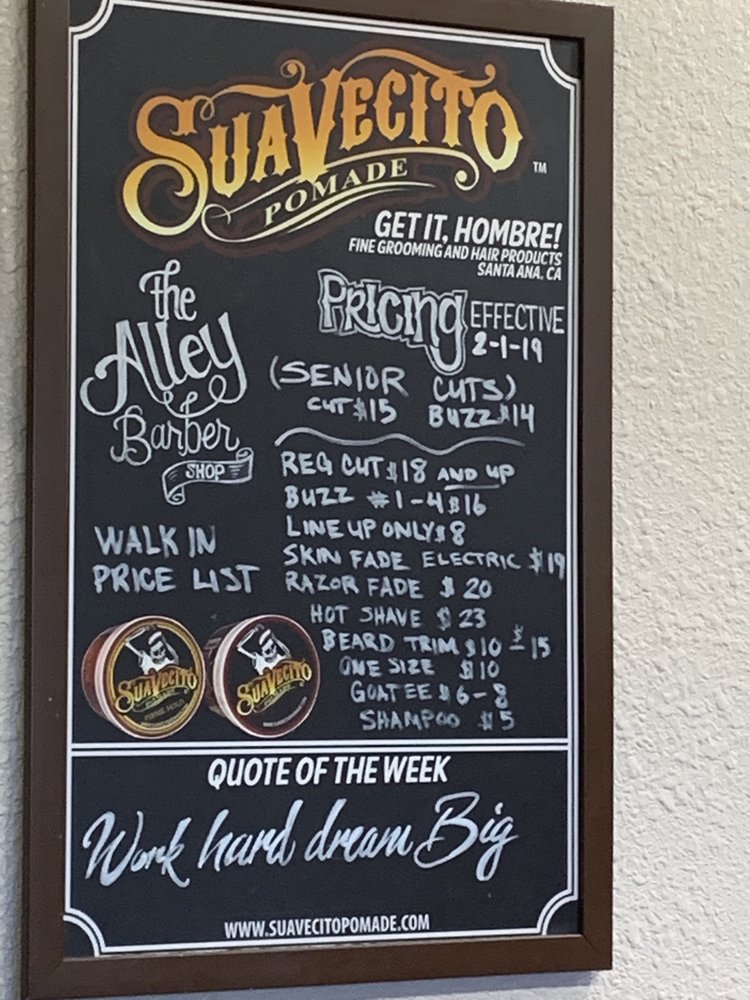 SUAVECITO
POMADE
TM
GET IT, HOMBRE!
FINE GROOMING AND HAIR PRODUCTS
SANTA ANA, CA
the
Alley
Barber
SHOP
PRICING EFFECTIVE
2-1-19
(SENIOR CUTS)
CUT $15 BUZZ $14
REG CUT $18 AND UP
BUZZ #1-4 $16
LINE UP ONLY $8
SKIN FADE ELECTRIC $19
RAZOR FADE $20
HOT SHAVE $23
BEARD TRIM $10 - $15
ONE SIZE $10
GOATEE $6-8
SHAMPOO $5
WALK IN
PRICE LIST
SUAVECITO
POMADE
SUAVECITO
POMADE
QUOTE OF THE WEEK
Work hard dream Big
WWW.SUAVECITOPOMADE.COM